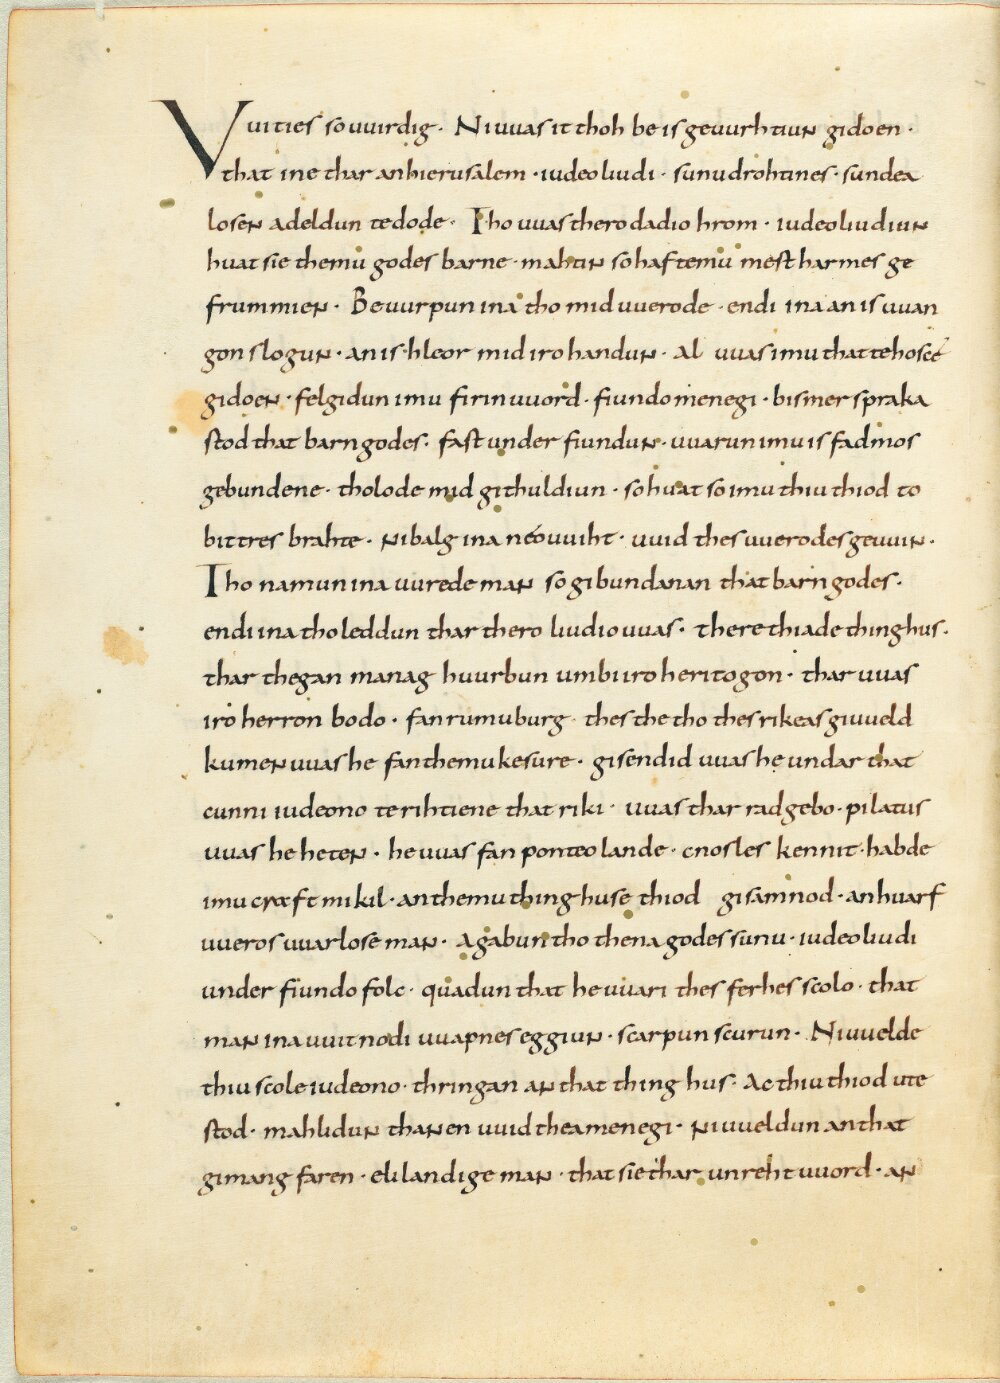 Vuities so uuirdig. Ni uuas it thoh be is geuurhtiun gidoen.
that ine thar an hierusalem. iudeo liudi. sunu drohtines. sundea
losen adeldun te dode. Tho uuas thero dadio hrom. iudeo liudiun
huat sie themu godes barne. mahtin so haftemu mest harmes ge
frummien. Beuurpun ina tho mid uuerode. endi ina an is uuan
gon slogun. an is hleor mid iro handun. Al uuas imu that te hosce
gidoen. felgidun imu firinuuord. fiundo menegi. bismerspraka
stod that barn godes. fast under fiundun. uuarun imu is fadmos
gebundene. tholode mid githuldiun. so huat so imu thiu thiod to
bittres brahte. ni balg ina neouuiht. uuid thes uuerodes geuuin.
Tho namun ina uurede man so gibundanan that barn godes.
endi ina tho leddun thar thero liudio uuas. there thiade thinghus.
thar thegan manag huurbun umbi iro heritogon. thar uuas
iro herron bodo. fan rumuburg thes the tho thes rikeas giuueld
kumen uuas he fan themu kesure. gisendid uuas he undar that
cunni iudeono te rihtiene that riki. uuas thar radgebo. pilatus
uuas he heten. he uuas fan ponteo lande. cnosles kennit. habde
imu cræft mikil. an themu thinghuse thiod gisamnod. an huarf
uueros uuarlose man. Agabun tho thena godes sunu. iudeo liudi
under fiundo folc. quadun that he uuari thes ferhes scolo. that
man ina uuitnodi uuapnes eggiun. scarpun scurun. Ni uuelde
thiu scole iudeono. thringan an that thing hus. Ac thiu thiod ute
stod. mahlidun thanen uuid thea menegi. ni uueldun an that
gimang faren. elilandige man. that sie thar unreht uuord. an